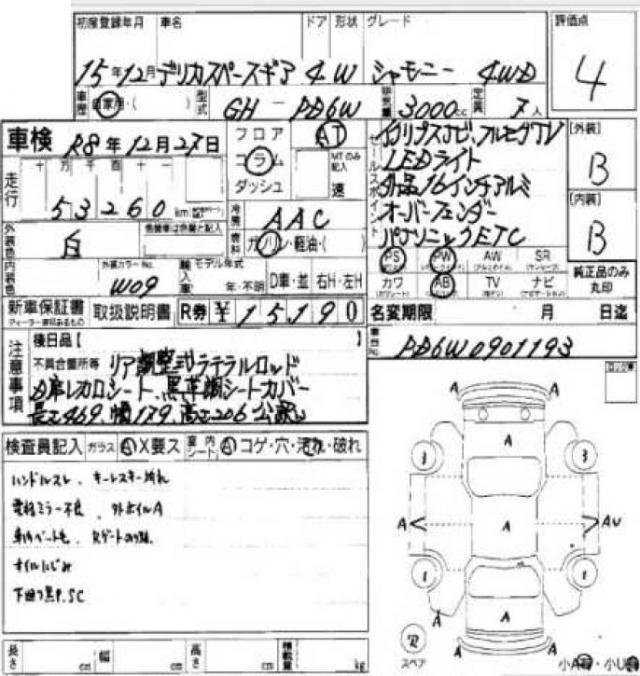 初度登録年月 車名 ドア 形状 グレード 評価点
15年12月 デリカスペースギア 4 W シャモニー 4WD 4
車歴 自家用・( ) 型式 GH-PD6W 排気量 3000cc 定員 7人
車検 R8年12月27日
フロア AT
コラム MTのみ記入
ダッシュ 速
走行 十万千百十
53260 km
冷房 AAC
燃料 ガソリン・軽油・( )
外装色 白 色替車は原色と記入
内装色 外装カラーNo. W09 輸入車 モデル年式 年・不明 D車・並 右H・左H
セールスポイント
イクリプスナビ,アルモグTV
LEDライト
外品16インチアルミ
オーバーフェンダー
パナソニックETC
[外装] B
[内装] B
PS PW AW SR
カワ AB TV ナビ
純正品のみ丸印
新車保証書 取扱説明書 R券 ¥15190
名変期限 月 日迄
車台No. PD6W0901193
注意事項
後日品【 】
不具合箇所等 リア調整式ラテラルロッド
D席レカロシート、黒革調シートカバー
長さ469、幅179、高さ206 公認
検査員記入 ガラス A X要ス 室内シート A コゲ・穴・汚れ・破れ
ハンドルスレ、キーレスキー汚れ
電格ミラー不良、外ホイルA
車内ペット毛、
オイルにじみ
下廻り黒P.SC
A A A
A
3 3
A A AU
1 1
A
A A A
R スペア
小A・小U
長さ cm 幅 cm 高さ cm 積載量 kg